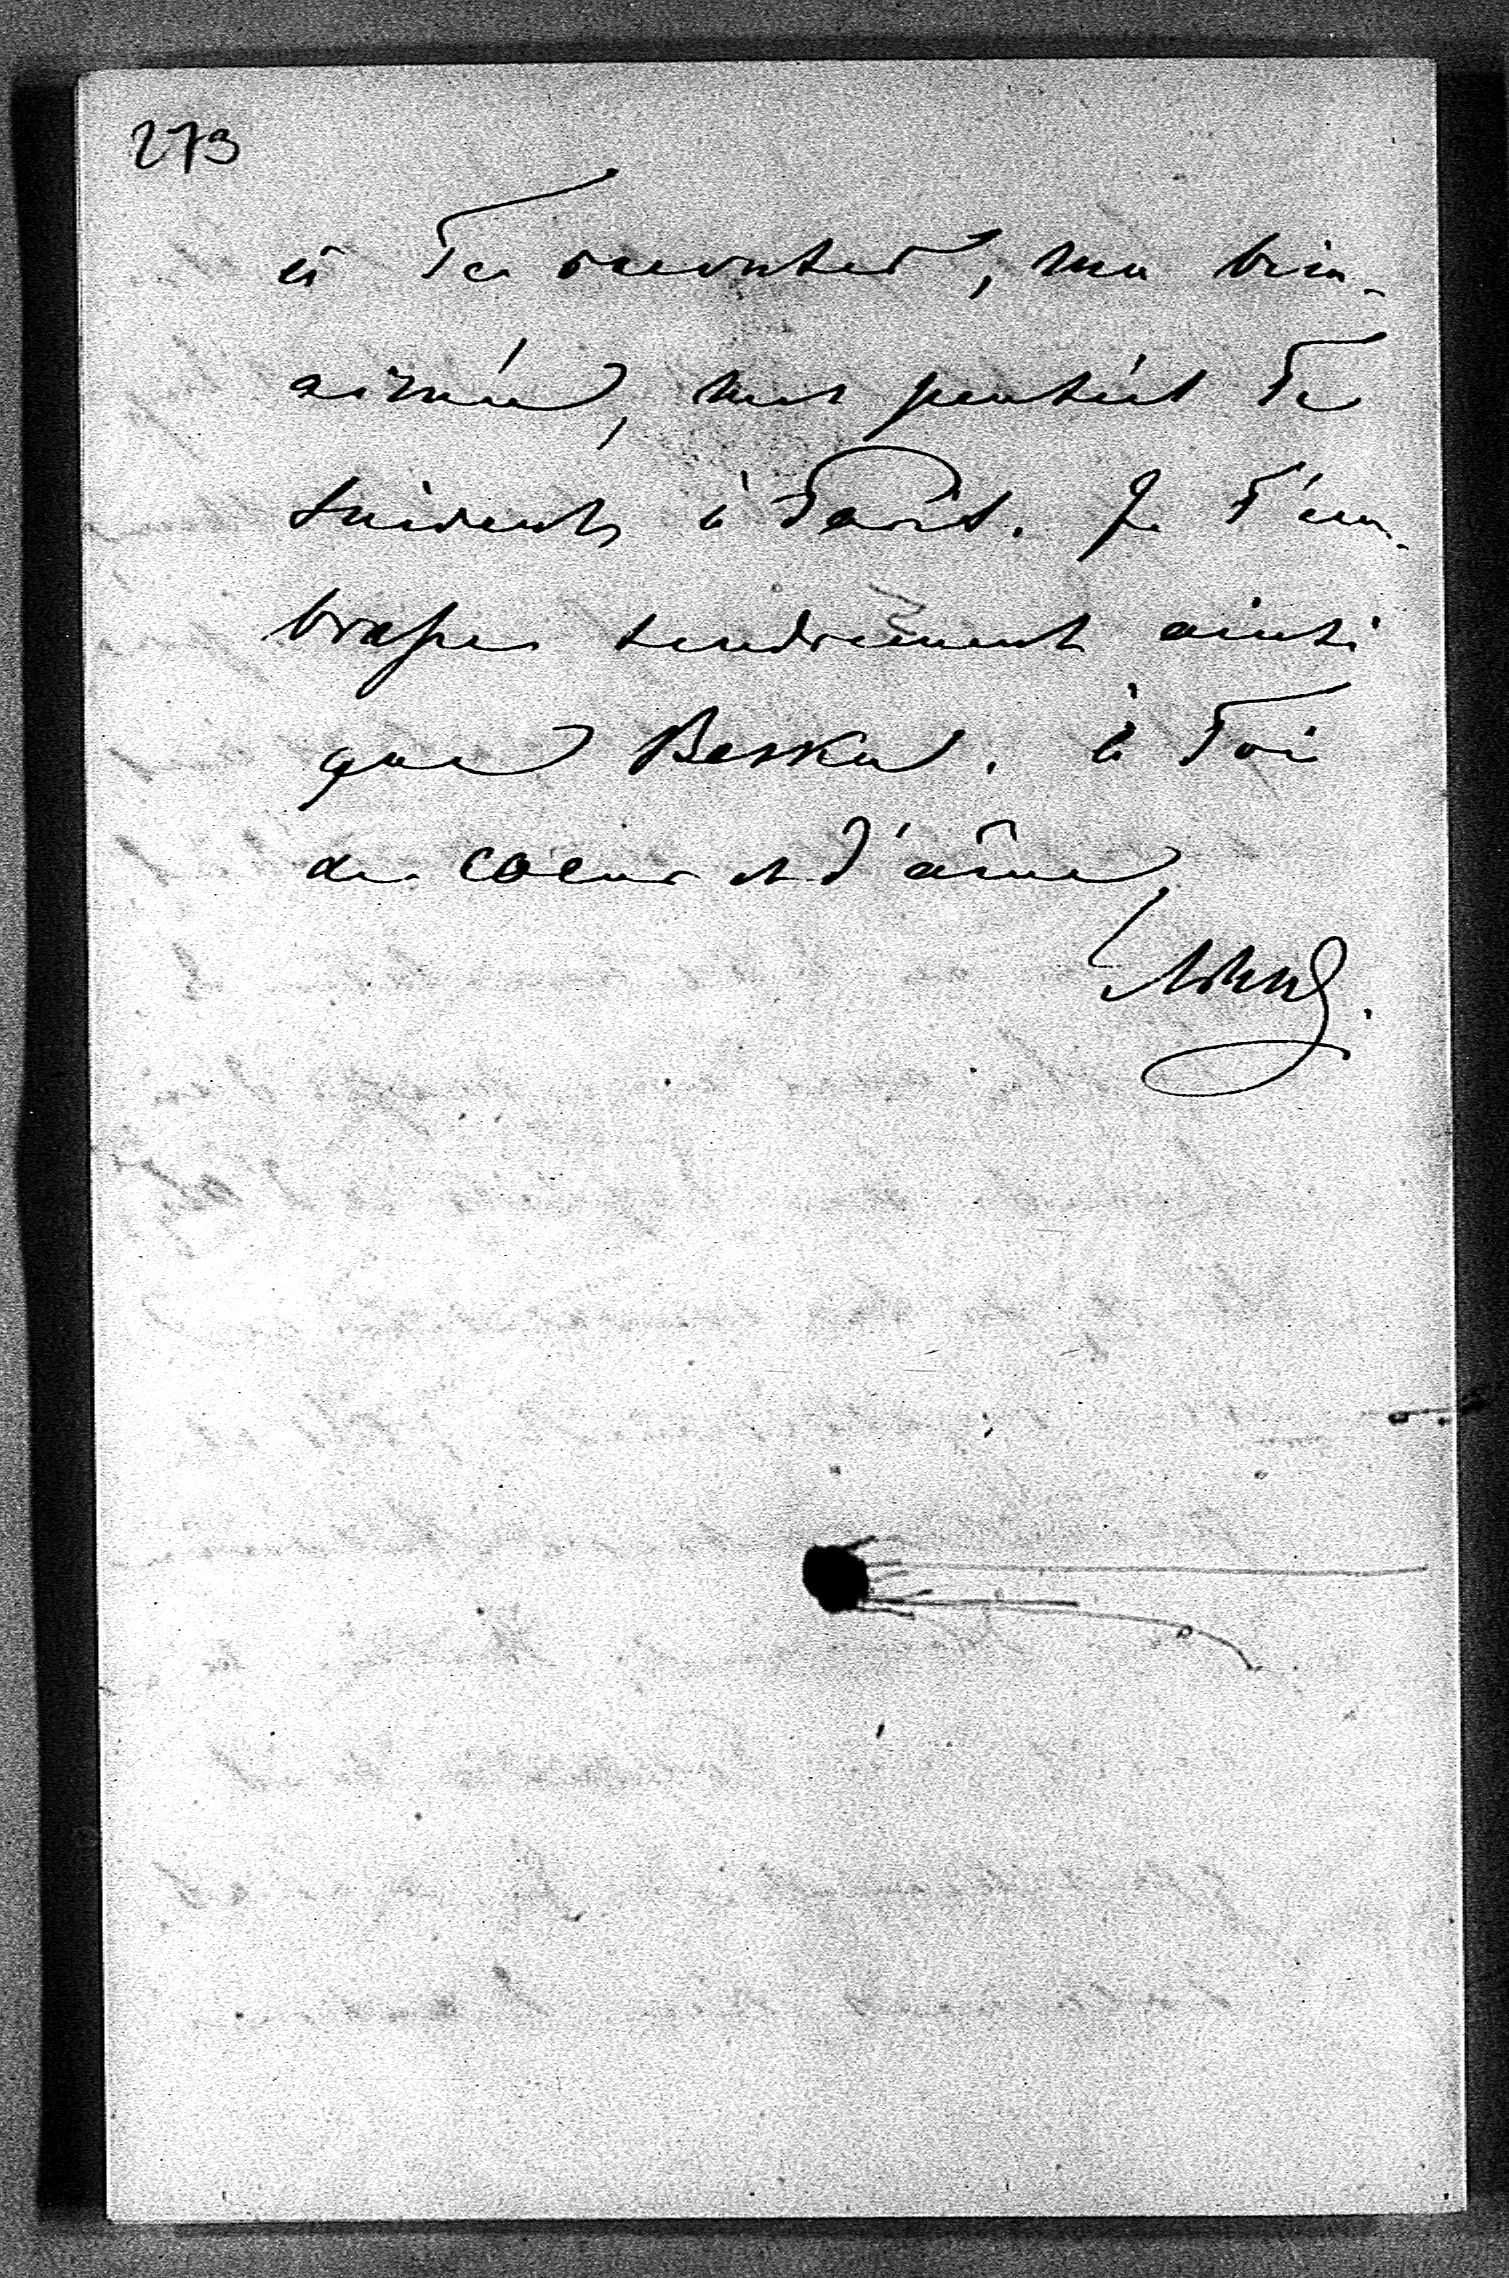 273
à Te raconter, ma bien-
aimée, mes pensées Te
suivent à Paris. Je T'em-
brasse tendrement ainsi
que Beska. à Toi
de coeur et d'âme